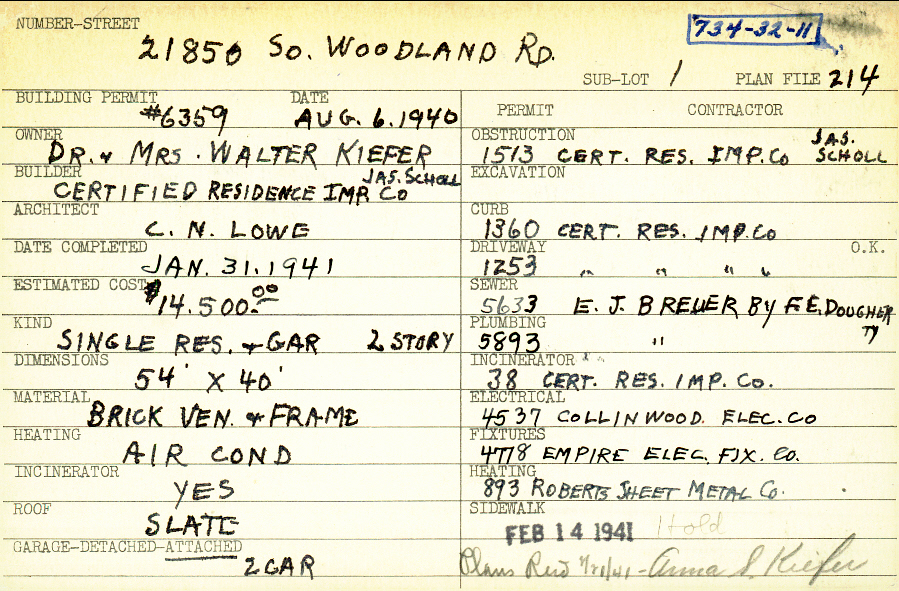 NUMBER-STREET
21850 So. WOODLAND RD.
734-32-11
SUB-LOT 1 PLAN FILE 214
BUILDING PERMIT #6359 DATE AUG. 6. 1940
OWNER
DR. & MRS. WALTER KIEFER
BUILDER
JAS. SCHOLL
CERTIFIED RESIDENCE IMP. Co
ARCHITECT
C. N. LOWE
DATE COMPLETED
JAN. 31. 1941
ESTIMATED COST
$14.500.00
KIND
SINGLE RES. & GAR 2 STORY
DIMENSIONS
54' X 40'
MATERIAL
BRICK VEN. & FRAME
HEATING
AIR COND
INCINERATOR
YES
ROOF
SLATE
GARAGE-DETACHED-ATTACHED
2 CAR
PERMIT CONTRACTOR
OBSTRUCTION
1513 CERT. RES. IMP. Co JAS. SCHOLL
EXCAVATION
CURB
1360 CERT. RES. IMP. Co
DRIVEWAY O.K.
1253 " " " "
SEWER
5633 E. J. BREUER By F.E. DOUGHERTY
PLUMBING
5893 "
INCINERATOR
38 CERT. RES. IMP. Co.
ELECTRICAL
4537 COLLINWOOD. ELEC. CO
FIXTURES
4778 EMPIRE ELEC. FIX. Co.
HEATING
893 ROBERTS SHEET METAL Co.
SIDEWALK
FEB 14 1941 Hold
Plans - Anna S. Kiefer